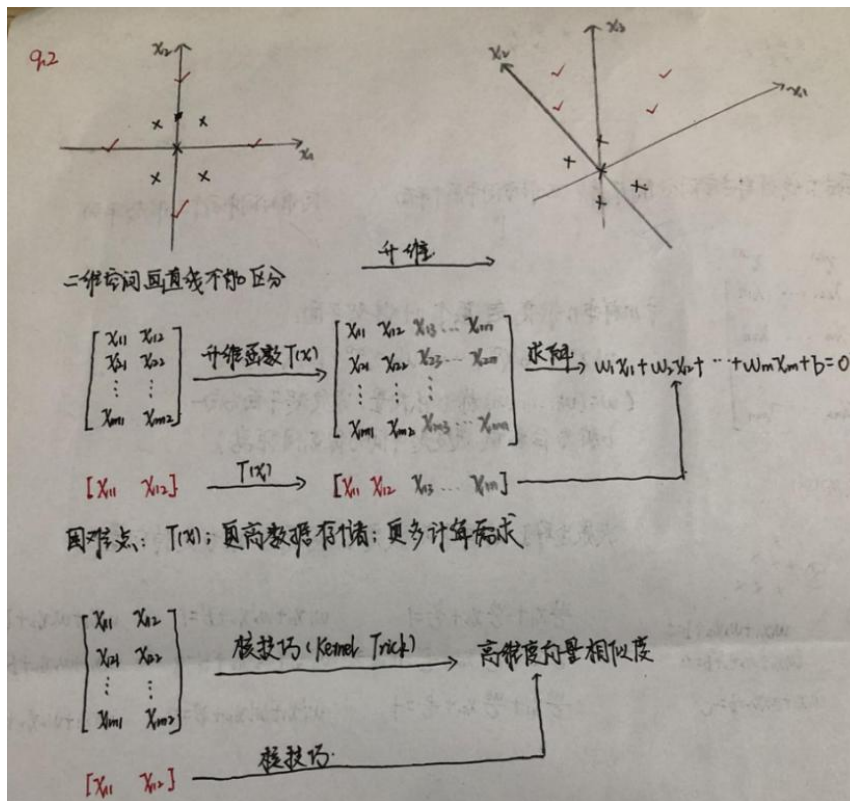 9.2
x₂
x₁
x₃
x₂
x₁
二维空间画直线不能区分
升维
[x₁₁ x₁₂
x₂₁ x₂₂
⋮ ⋮
xₘ₁ xₘ₂]
升维函数T(x)
[x₁₁ x₁₂ x₁₃ … x₁ₙ
x₂₁ x₂₂ x₂₃ … x₂ₙ
⋮ ⋮
xₘ₁ xₘ₂ xₘ₃ … xₘₙ]
求解
w₁x₁₁+w₂x₁₂+…+wₘxₘ+b=0
[x₁₁ x₁₂]
T(x)
[x₁₁ x₁₂ x₁₃ … x₁ₙ]
困难点: T(x); 更高数据存储; 更多计算需求
[x₁₁ x₁₂
x₂₁ x₂₂
⋮ ⋮
xₘ₁ xₘ₂]
核技巧(Kernel Trick)
高维度向量相似度
[x₁₁ x₁₂]
核技巧.